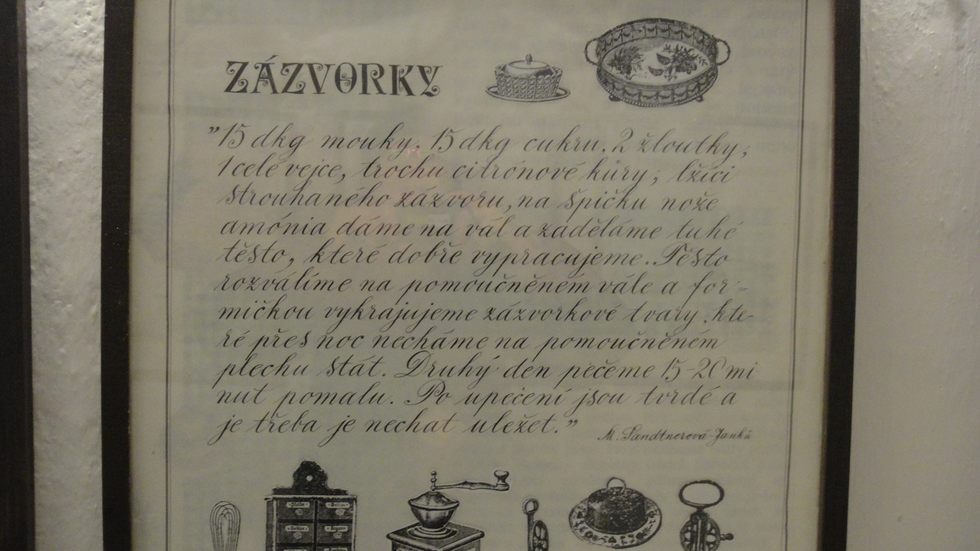 ZÁZVORKY
"15 dkg mouky, 15 dkg cukru, 2 žloutky,
1 celé vejce, trochu citrónové kůry, lžíci
strouhaného zázvoru, na špičku nože
amónia dáme na vál a zaděláme tuhé
těsto, které dobře vypracujeme. Těsto
rozválíme na pomoučněném vále a for-
mičkou vykrajujeme zázvorkové tvary, kte-
ré přes noc necháme na pomoučněném
plechu stát. Druhý den pečeme 15-20 mi
nut pomalu. Po upečení jsou tvrdé a
je třeba je nechat uležet."
M. Sandtnerová-Janků